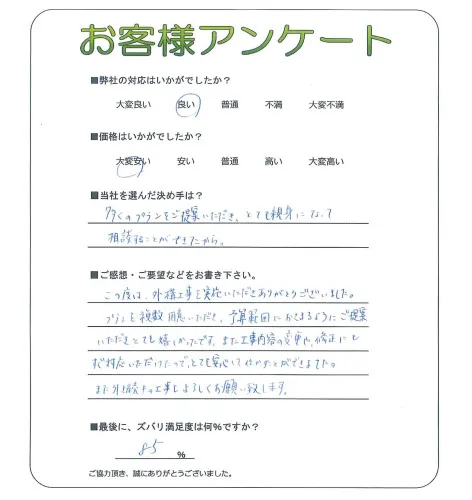 お客様アンケート
■弊社の対応はいかがでしたか?
大変良い 良い 普通 不満 大変不満
■価格はいかがでしたか?
大変安い 安い 普通 高い 大変高い
■当社を選んだ決め手は?
多くのプランをご提案いただき、とても親身になって
相談することができたから。
■ご感想・ご要望などをお書き下さい。
この度は、外構工事を実施いただきありがとうございました。
プランを複数用意いただき、予算範囲におさまるようにご提案
いただきとても嬉しかったです。また工事内容の変更や、修正にも
ご対応いただけたので、とても安心して任せることができました。
また外構の工事もよろしくお願い致します。
■最後に、ズバリ満足度は何%ですか?
85 %
ご協力頂き、誠にありがとうございました。